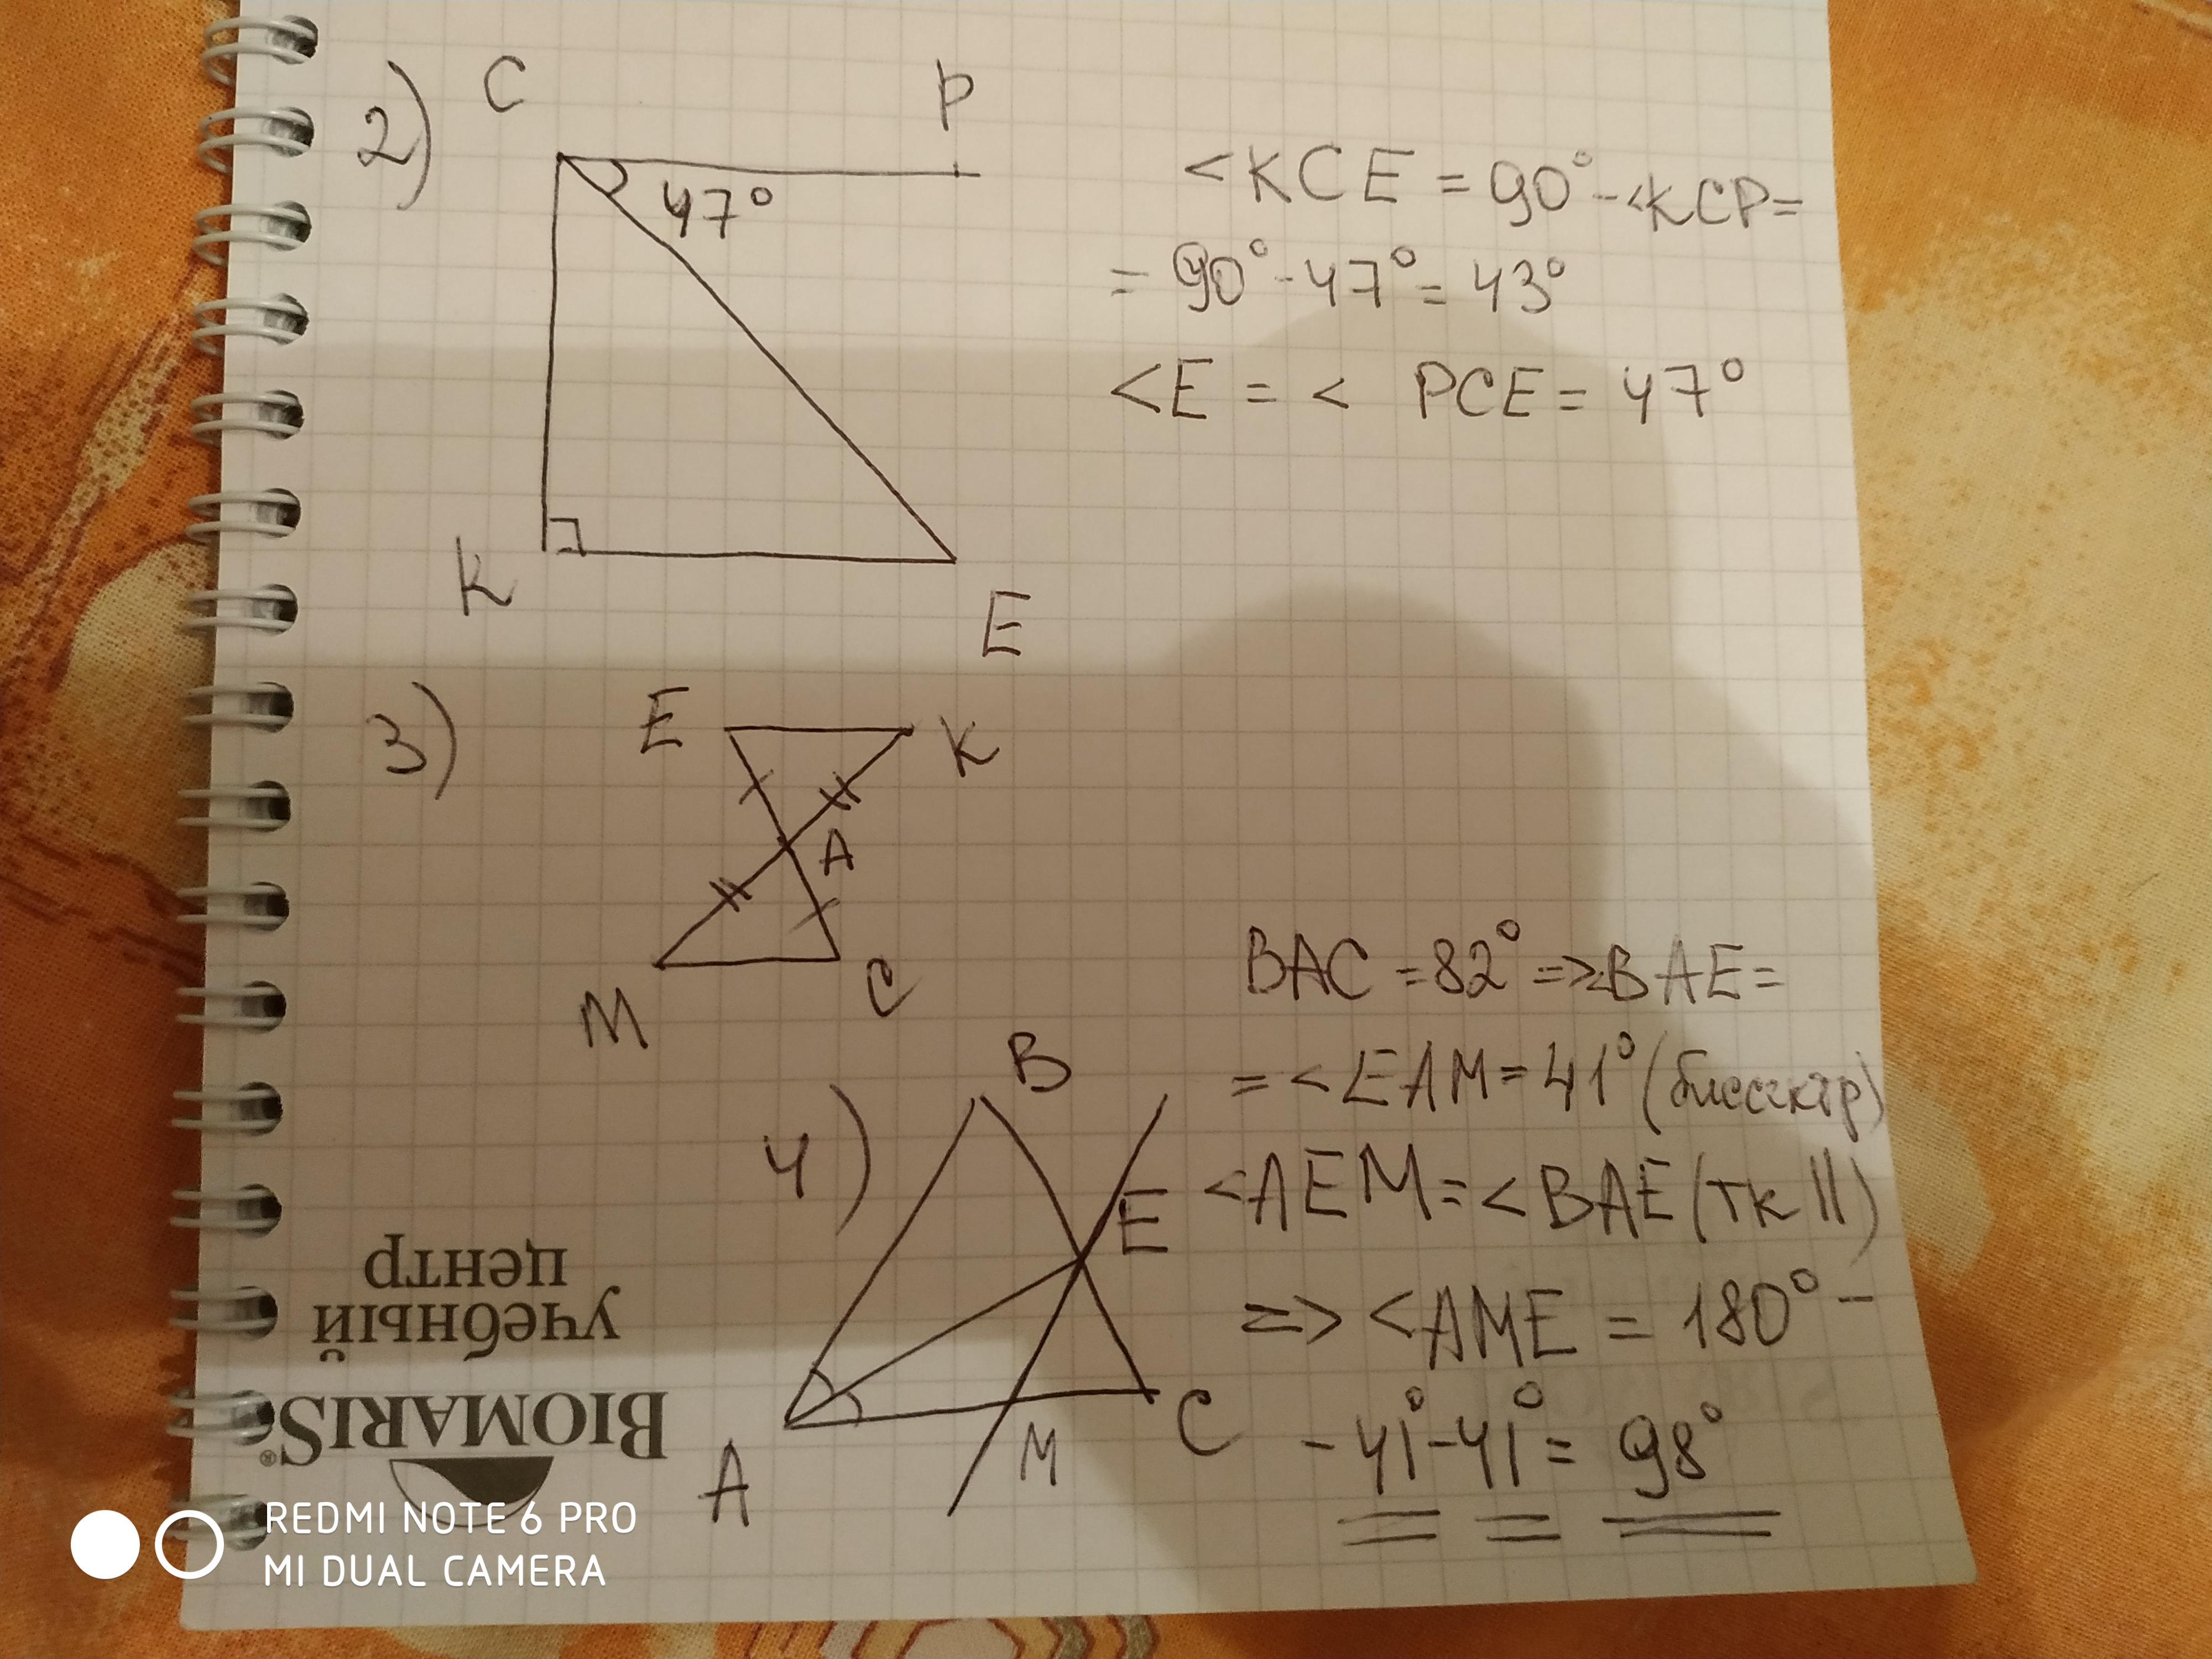 2)
C
P
47°
K
E
<KCE = 90° - <KCP =
= 90° - 47° = 43°
<E = < PCE = 47°
3)
E
K
A
M
C
4)
B
E
A
M
C
BAC = 82° => <BAE =
= <EAM = 41° (биссектр)
<AEM = <BAE (тк ||)
=> <AME = 180° -
- 41° - 41° = 98°
BIOMARIS®
учебный
центр
REDMI NOTE 6 PRO
MI DUAL CAMERA